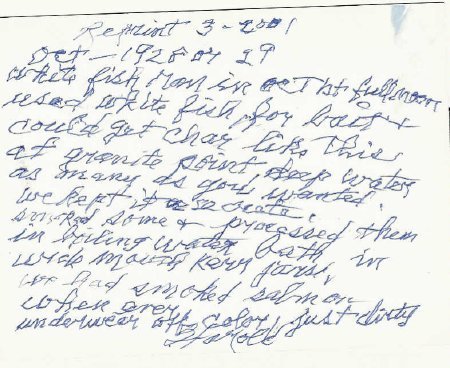 Reprint 3-2001
Oct - 1928 or 29
white fish run in Oct 1st full moon
used white fish for bait &
could get char like this
at granite point deep water
as many as you wanted.
we kept it
smoked some & processed them
in boiling water bath in
wide mouth Kerr jars,
we had smoked salmon
when ever
underwear off color, just dirty
Harold